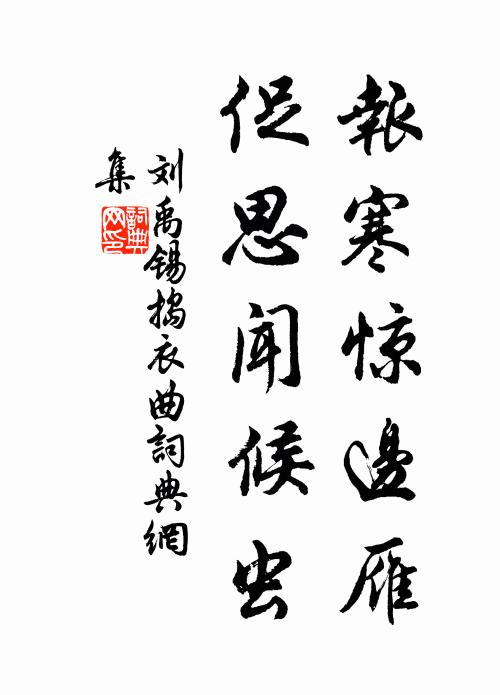 報寒惊邊雁
促思聞候虫
刘禹锡捣衣曲詞典網
集
詞典网印